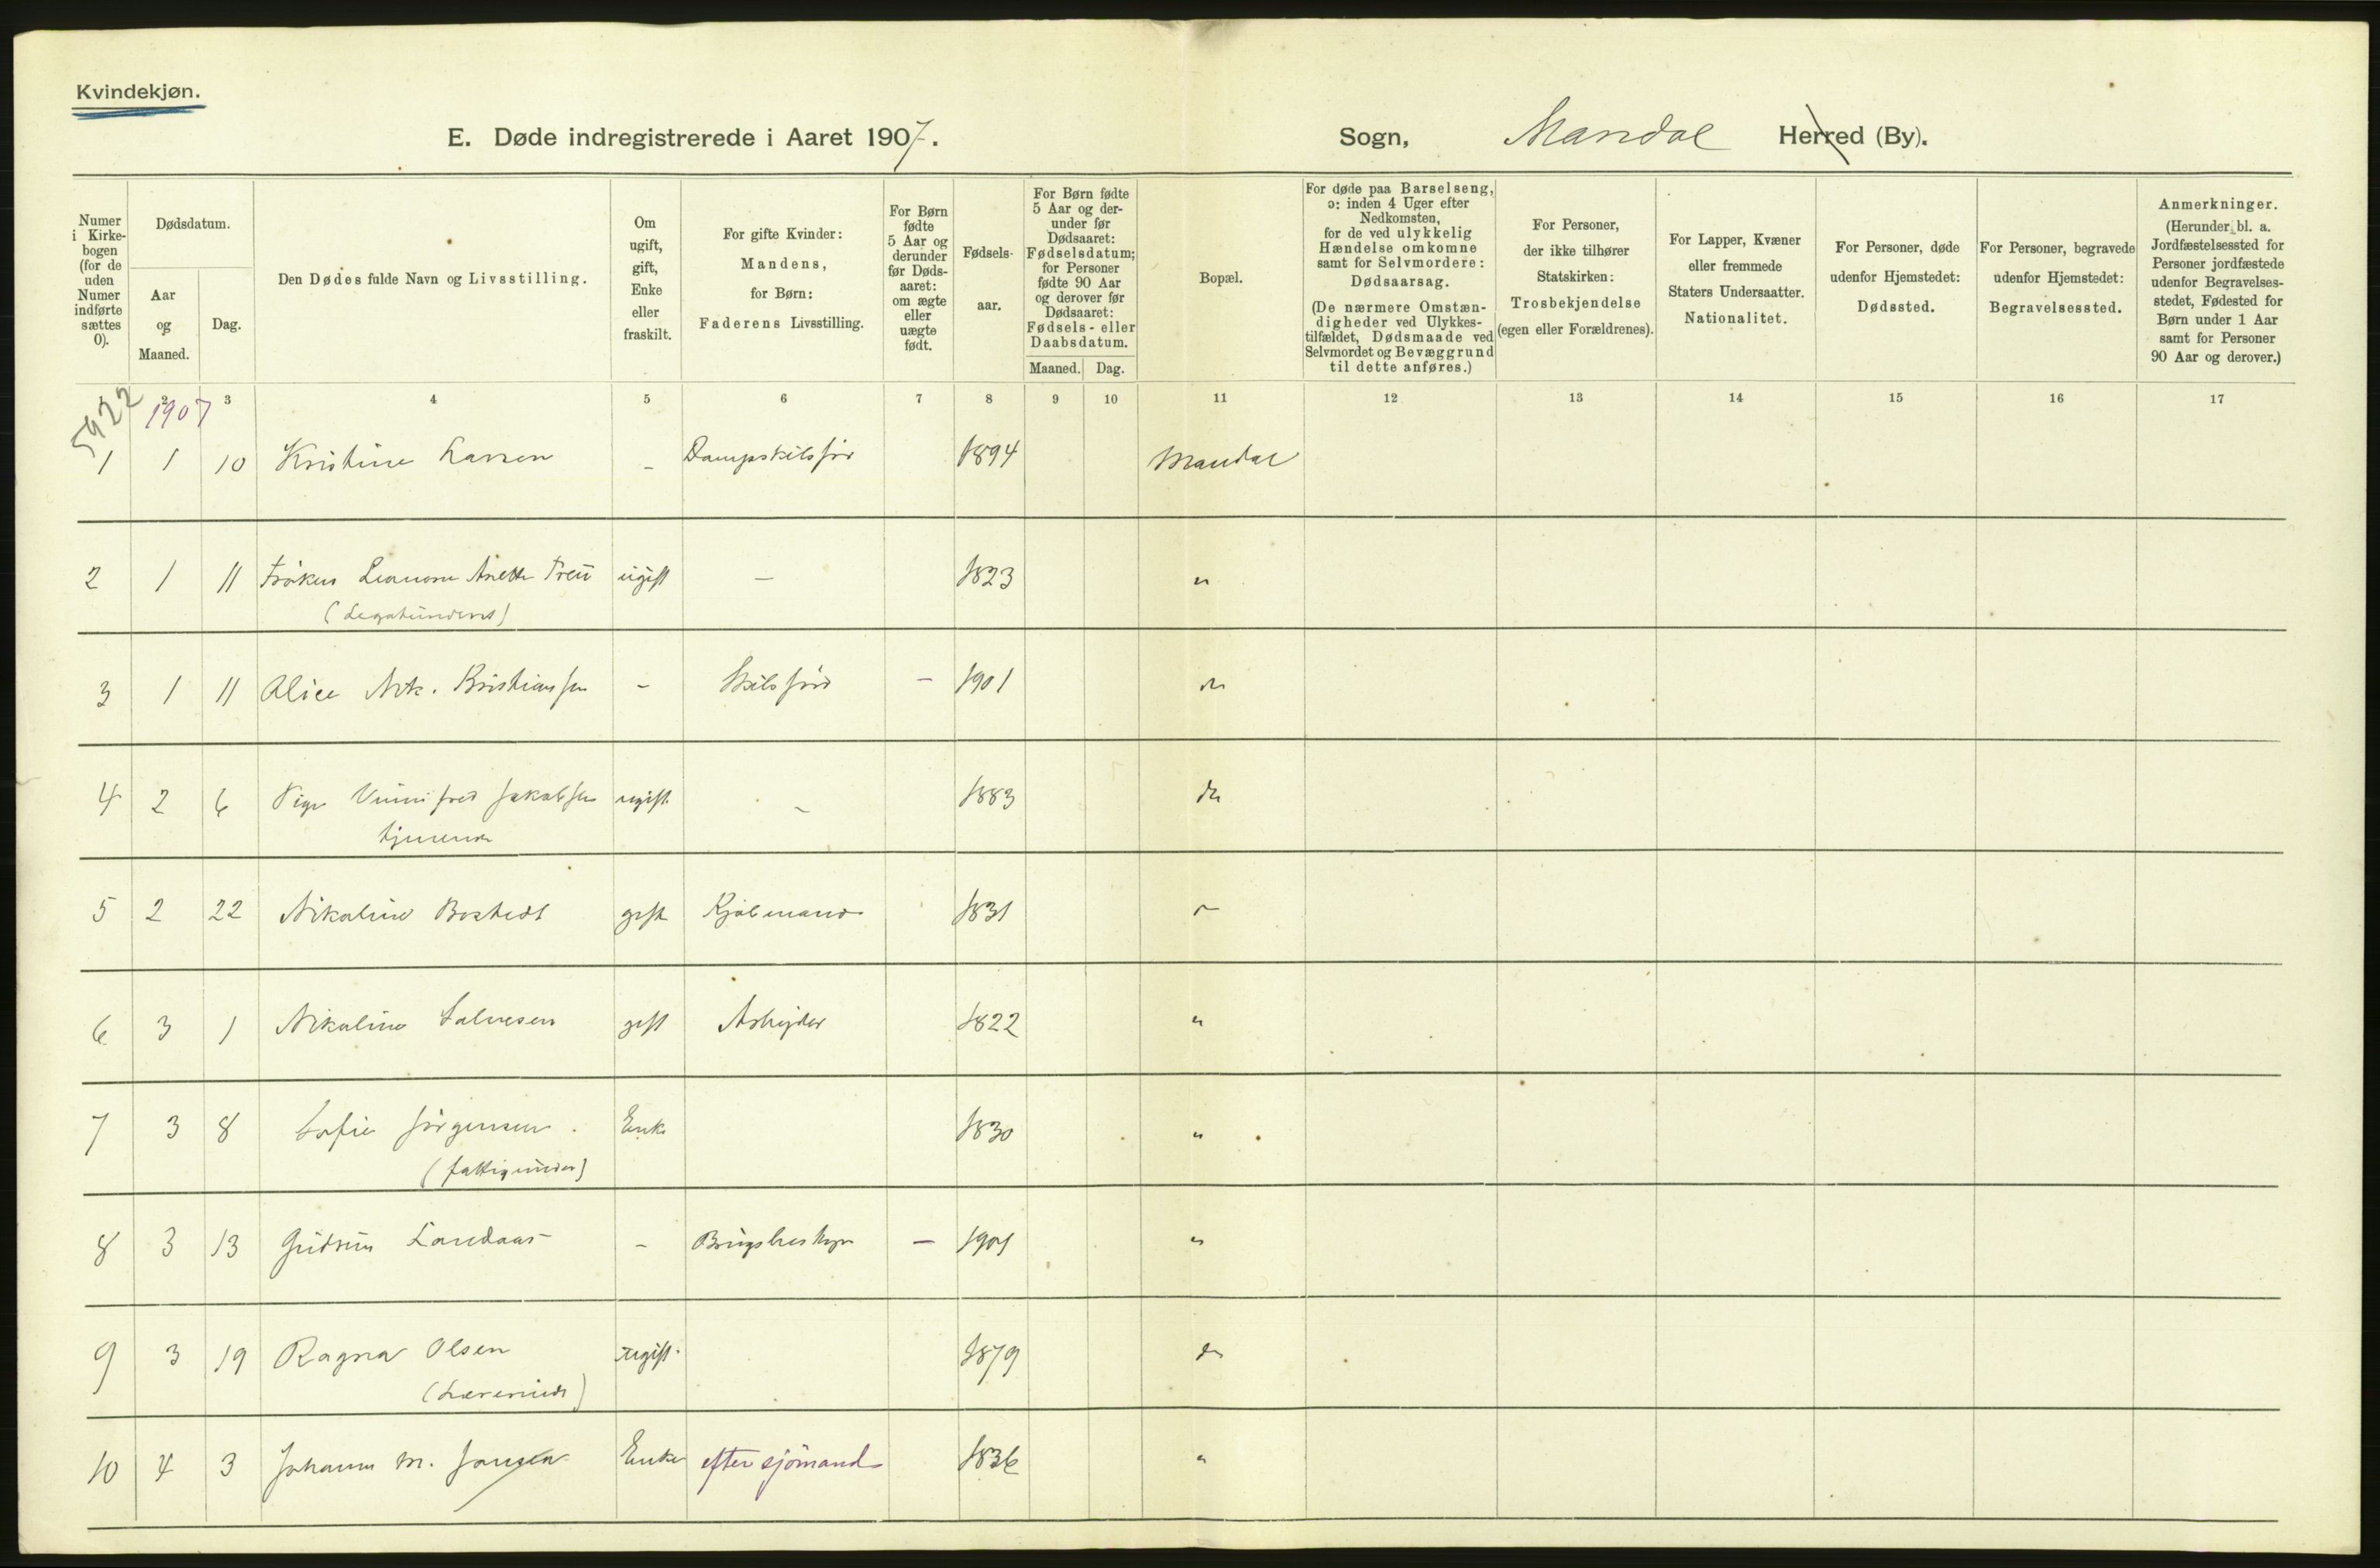 Kvindekjøn.
E. Døde indregistrerede i Aaret 1907.
Sogn, Mandal Herred (By).
Numer i Kirkebogen (for de uden Numer indførte sættes 0).
Dødsdatum.
Aar og Maaned.
Dag.
Den Dødes fulde Navn og Livsstilling.
Om ugift, gift, Enke eller fraskilt.
For gifte Kvinder: Mandens, for Børn: Faderens Livsstilling.
For Børn fødte 5 Aar og derunder før Dødsaaret: om ægte eller uægte født.
Fødselsaar.
For Børn fødte 5 Aar og derunder før Dødsaaret: Fødselsdatum; for Personer fødte 90 Aar og derover før Dødsaaret: Fødsels- eller Daabsdatum.
Maaned. Dag.
Bopæl.
For døde paa Barselseng, ɔ: inden 4 Uger efter Nedkomsten, for de ved ulykkelig Hændelse omkomne samt for Selvmordere: Dødsaarsag. (De nærmere Omstændigheder ved Ulykkestilfældet, Dødsmaade ved Selvmordet og Bevæggrund til dette anføres.)
For Personer, der ikke tilhører Statskirken: Trosbekjendelse (egen eller Forældrenes).
For Lapper, Kvæner eller fremmede Staters Undersaatter. Nationalitet.
For Personer, døde udenfor Hjemstedet: Dødssted.
For Personer, begravede udenfor Hjemstedet: Begravelsessted.
Anmerkninger. (Herunder bl. a. Jordfæstelsessted for Personer jordfæstede udenfor Begravelsesstedet, Fødested for Børn under 1 Aar samt for Personer 90 Aar og derover.)
1 2 3 4 5 6 7 8 9 10 11 12 13 14 15 16 17
5422 1907
1 1 10 Kristine Larsen - Dampskibsfør 1894 Mandal
2 1 11 Frøken Anette ugift - 1823 "
3 1 11 Alice Kristiansen - Skibsfører - 1901 do
4 2 6 Pige Jakobsen ugift - 1883 do
tjenende
5 2 22 Nikoline Bostedt gift Kjøbmand 1831
6 3 1 Nikoline Salvesen gift Arbeider 1822 "
7 3 8 Sofie Jørgensen. Enke 1830 "
(fattigunder)
8 3 13 Gudrun Landaas - - 1901 "
9 3 19 Ragna Olsen ugift. 1879 do
(Lærerinde)
10 4 3 Johanne M. Jansen Enke efter sjømand 1836 "